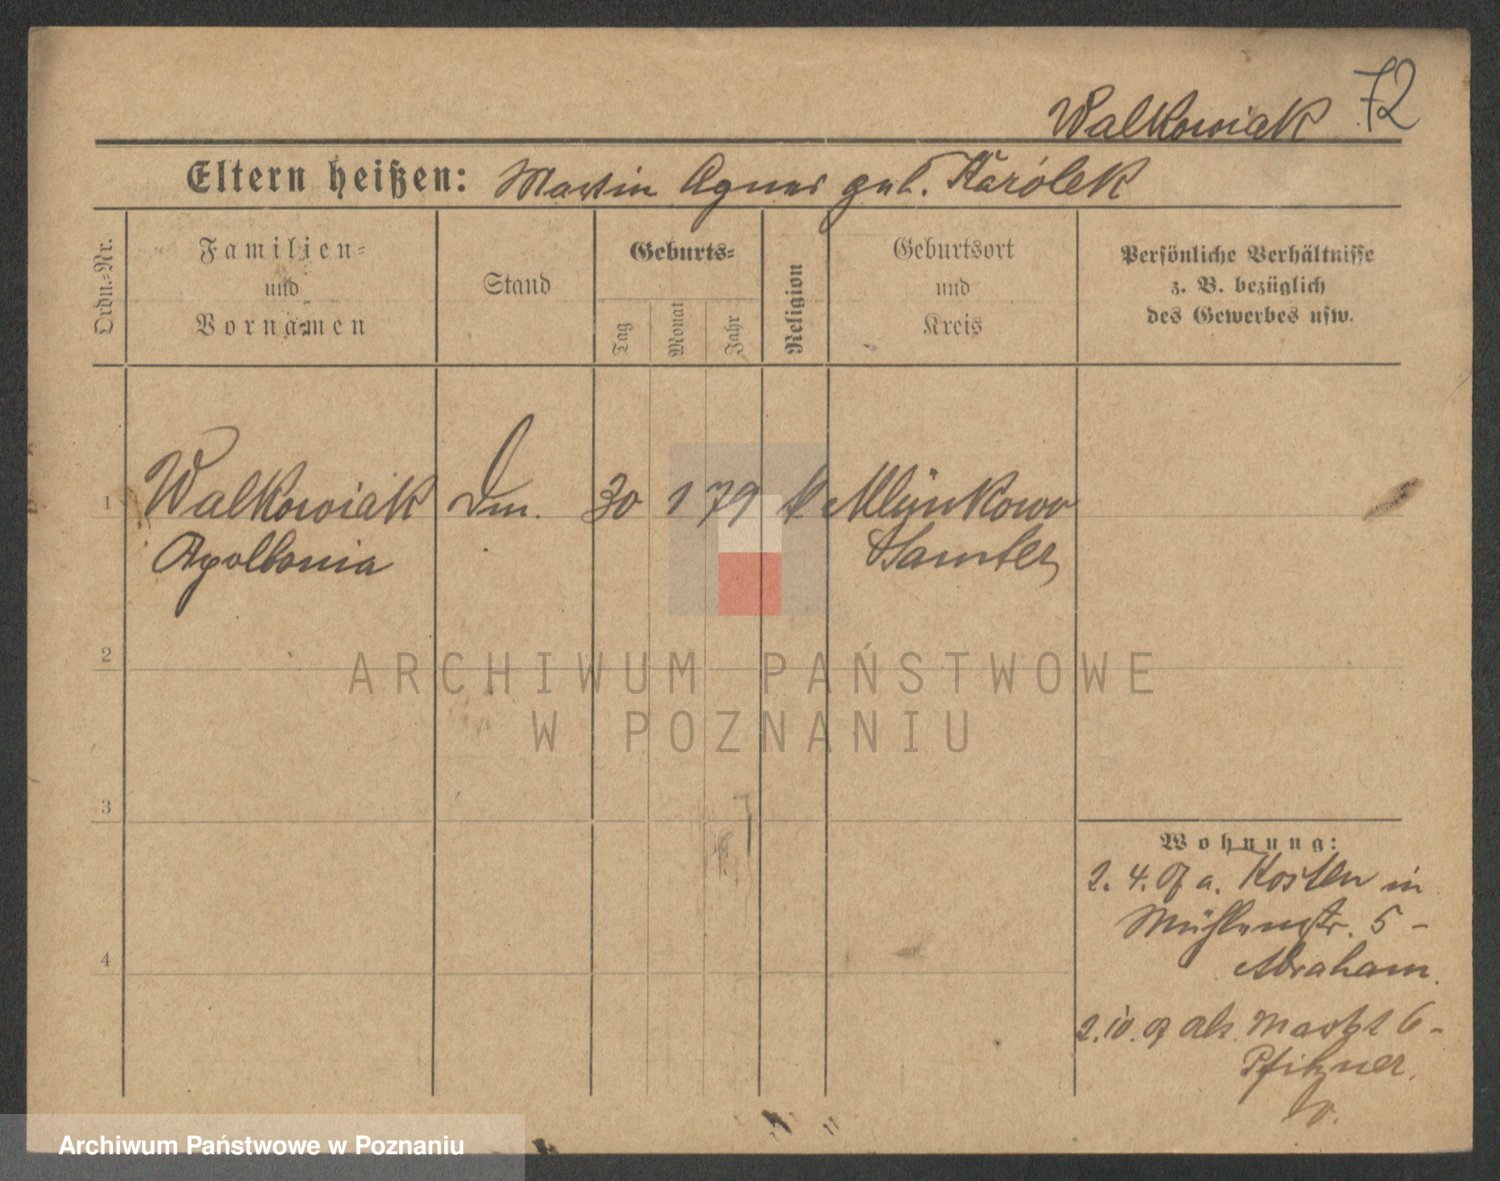 Walkowiak 72
Eltern heißen: Martin Agnes geb. Karólek
Ordn.=Nr.
Familien=
und
Vornamen
Stand
Geburts=
Tag
Monat
Jahr
Religion
Geburtsort
und
Kreis
Persönliche Verhältnisse
z. B. bezüglich
des Gewerbes usw.
1 Walkowiak Dm. 30 1 79 k Mlynkowo
Apollonia Samter
2
3
4
Wohnung:
2. 4. 07 a. Kosten in
Mühlenstr. 5 -
Abraham.
2. 10. 07 Markt 6 -
Pfitzner.
ARCHIWUM PAŃSTWOWE
W POZNANIU
Archiwum Państwowe w Poznaniu